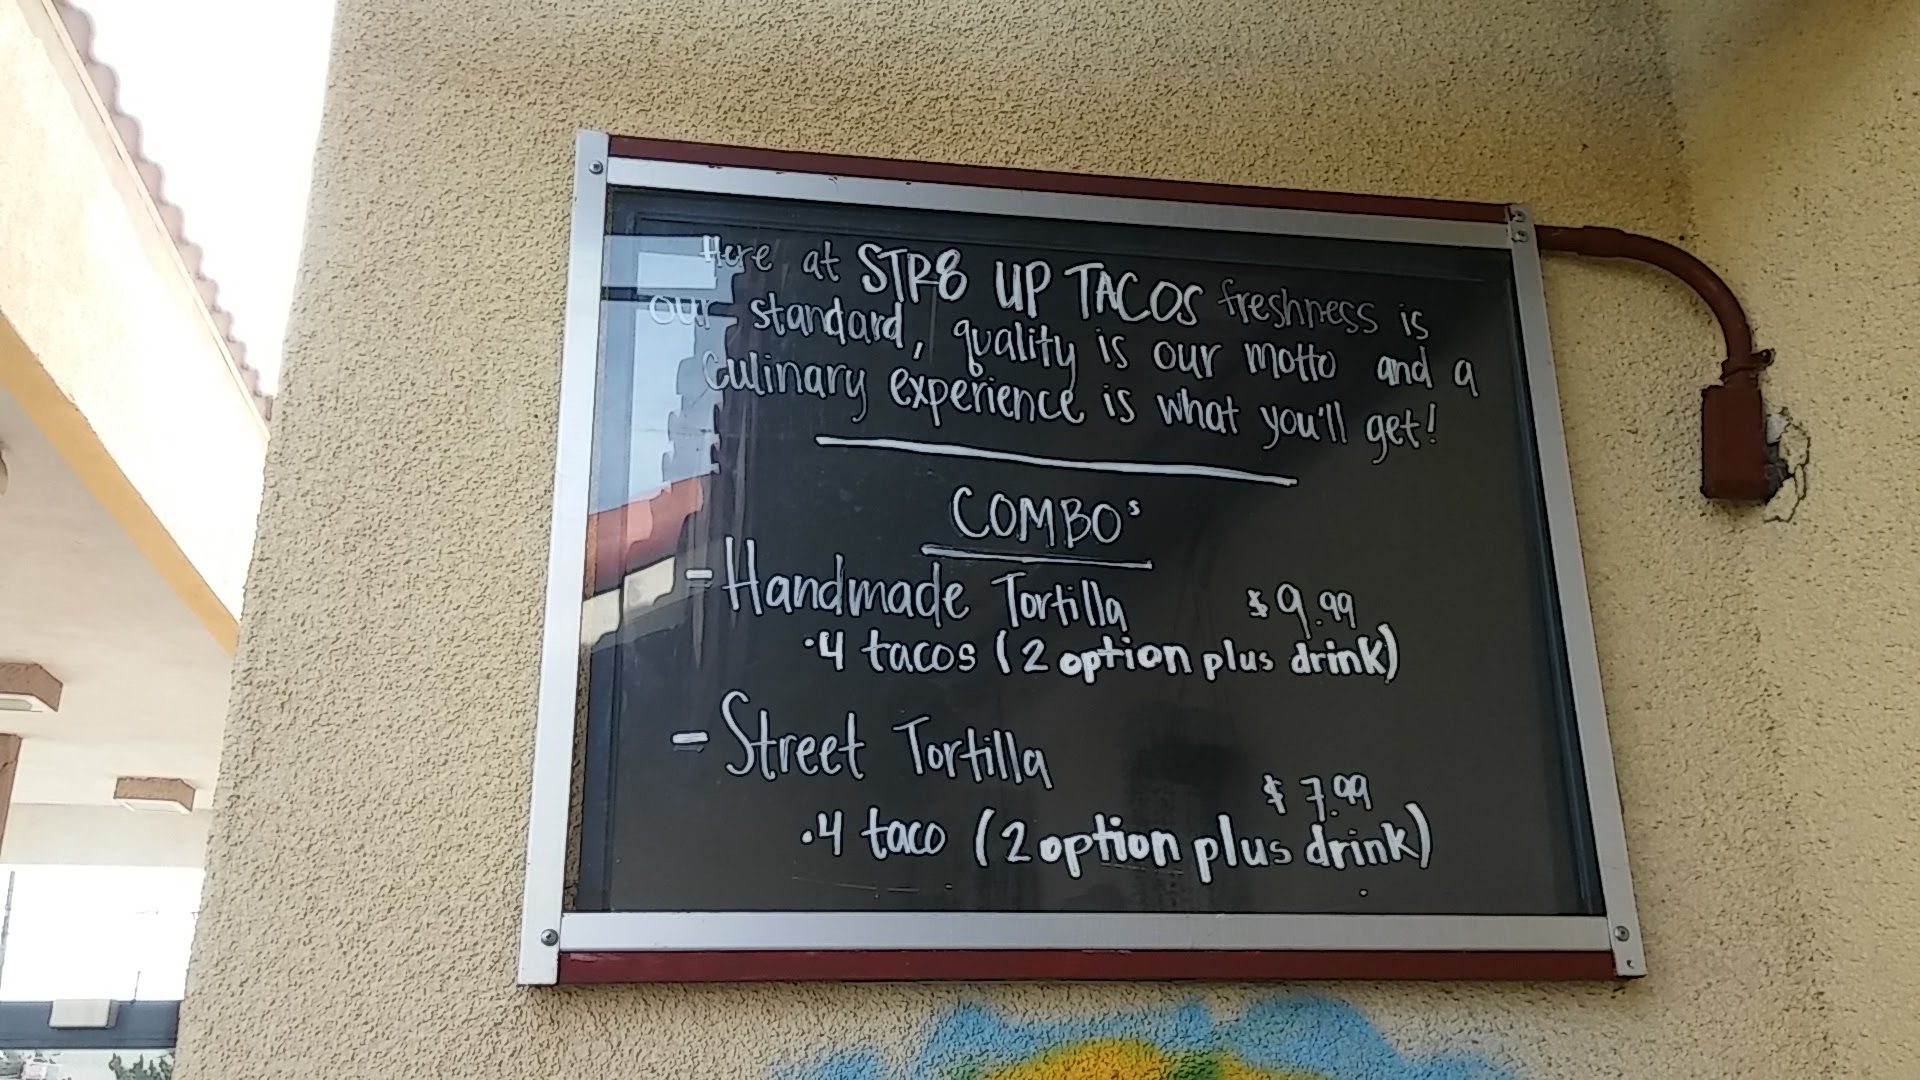 Here at STR8 UP TACOS freshness is
our standard, quality is our motto and a
culinary experience is what you'll get!
COMBO's
- Handmade Tortilla $9.99
·4 tacos (2 option plus drink)
- Street Tortilla
$7.99
·4 taco (2 option plus drink)